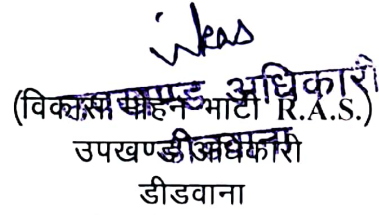 उपखण्ड अधिकारी
(विकास मोहन भाटी R.A.S.)
डीडवाना
उपखण्ड अधिकारी
डीडवाना